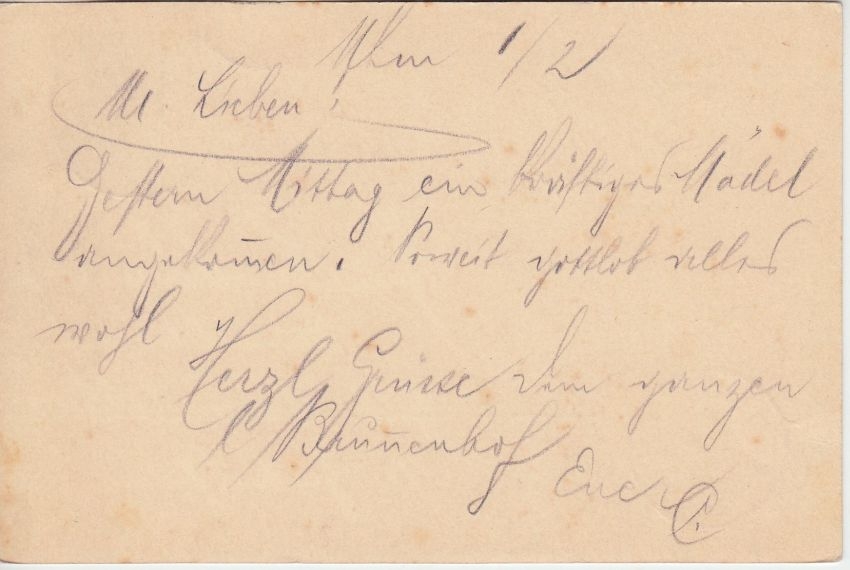 Ulm 1/2
M. Lieben!
Gestern Mittag ein kräftiges Mädel
angekom̅en. Soweit gottlob alles
wohl
Herzl Grüsse dem ganzen
Brunnenhof
Euer C.